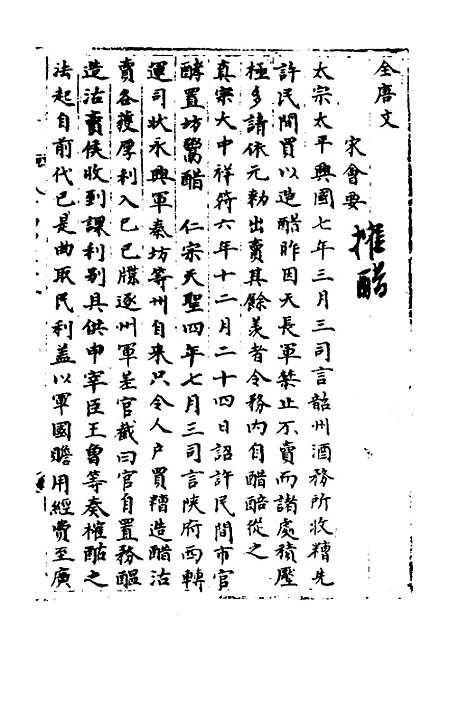 全唐文
宋會要
搉醋
太宗太平興國七年三月三司言韶州酒務所收糟先
許民間買以造醋昨因天長軍禁止不賣而諸處積壓
極多請依元勑出賣其餘羡者令務内自醋醅從之
真宗大中祥符六年十二月二十四日詔許民間市官
酵置坊鬻醋 仁宗天聖四年七月三司言陝府西轉
運司狀永興軍秦坊等州自来只令人户買糟造醋沽
賣各獲厚利入已已牒逐州軍差官截曰官自置務醖
造沽賣候收到課利别具供申宰臣王魯等奏榷酤之
法起自前代已是曲取民利盖以軍國贍用經費至廣